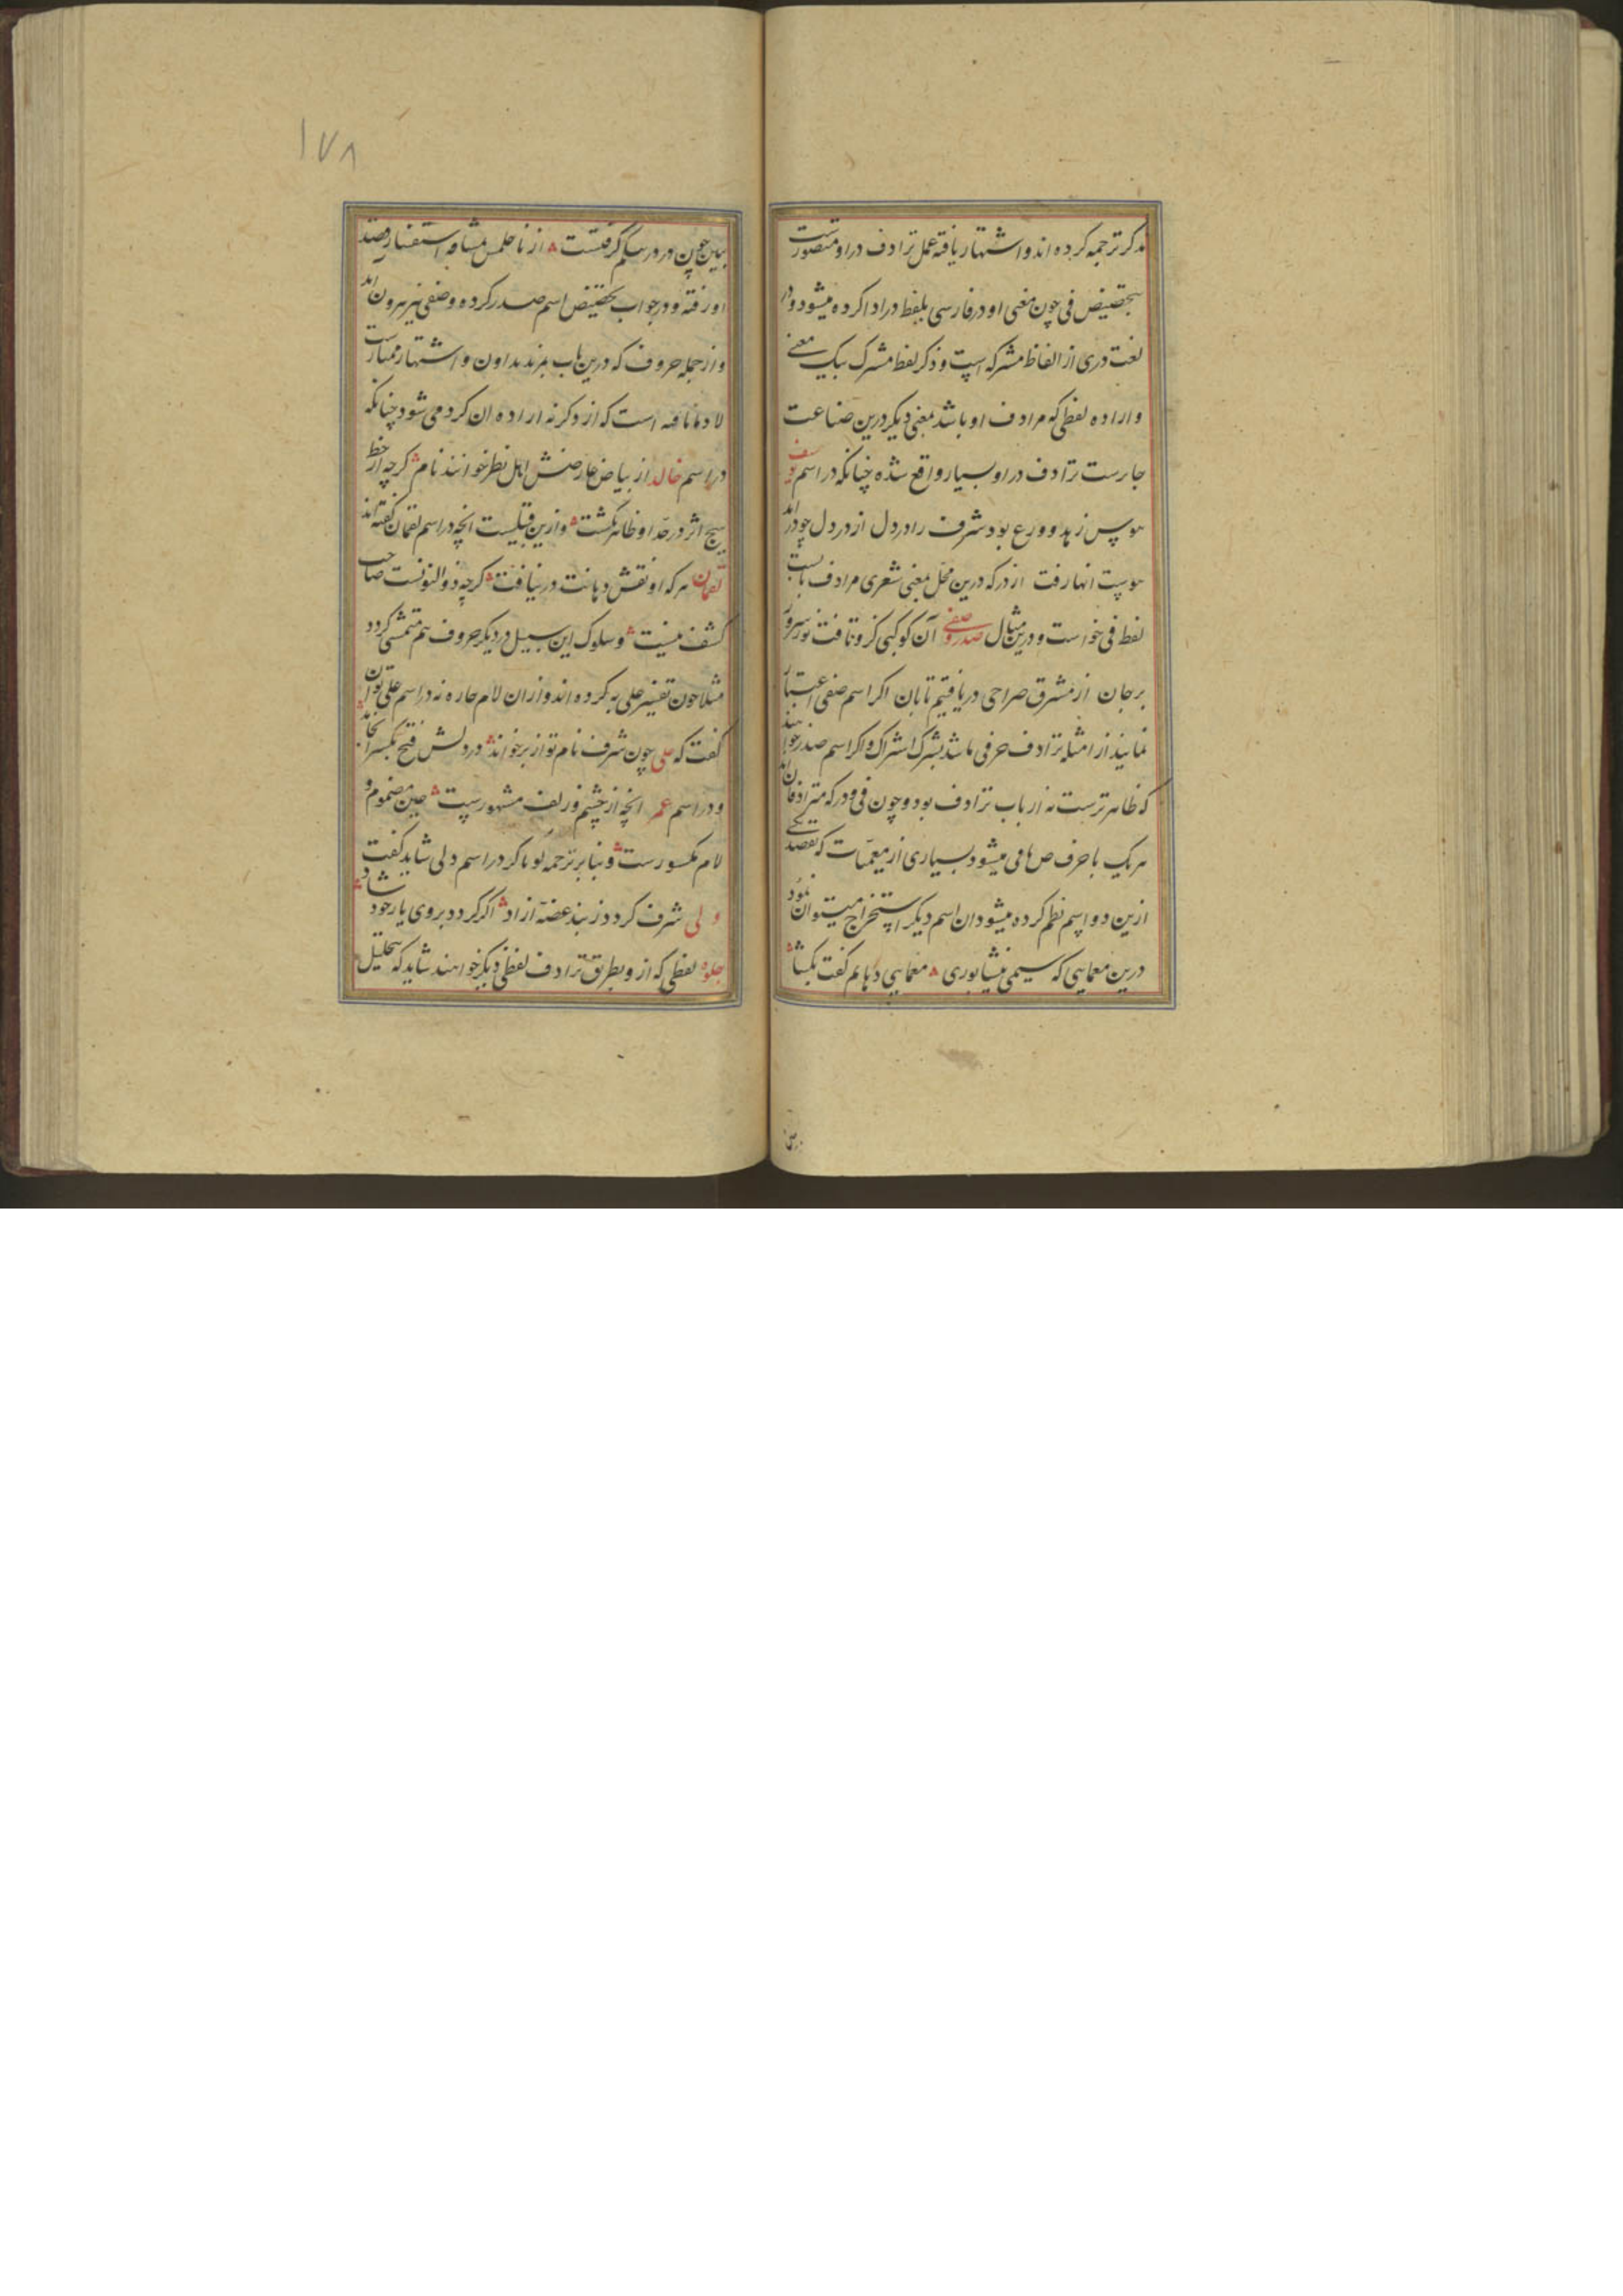 مذکر ترجمه کرده اند و اشتهار یافته عمل ترادف در او متصورست
بتخصیص فی چون معنی او در فارسی بلفظ در ادا کرده میشود و در
لغت دری از الفاظ مشترکه است و ذکر لفظ مشترک بیک معنی
و اراده لفظی که مرادف او باشد بمعنی دیگر درین صناعت
جارست ترادف در او بسیار واقع شده چنانکه در اسم یوسف
هوس زهد و ورع بود شرف را در دل از در دل چو در آمد
هوست انها رفت از در که درین محل بمعنی شعری مرادف بابست
لفظ فی خواست و درین مثال صدر و صفی آن کوکبی کزو تافت نور سرور
بر جان از مشرق صراحی دریافتیم تابان اکر اسم صفی اعتبار
نمایند از امثله ترادف حرفی باشد بشرک اشتراک و اکر اسم صدر خواهند
که ظاهرترست نه از باب ترادف بود و چون فی و در که مترادفان اند
هریک با حرف ص نامی میشود بسیاری از معمیات که بقصد یکی
ازین دو اسم نظم کرده میشود ان اسم دیکر استخراج میتوان نمود
درین معمایی که سیمی نیشابوری معمایی دهانم کفت بکشا
۱۷۸
ببین چون در و در سلم کرفتست از ناحلمس مشافه استفسار قصد
او رفته و در جواب بتخصیص اسم صدر کرده و صفی نیز بیرون امد
و از جمله حروف که درین باب بمزید تداول و اشتهار ممتازست
لا و ما نافیه است که از ذکر نه اراده ان کرده می شود چنانکه
در اسم خالد از بیاض عارضش اهل نظر خوانند نام کرچه از خط
هیچ اثر در خد او ظاهر نکشت و ازین قبیلست انچه در اسم لقمان کفته اند
لقمان هرکه او نقش دهانت در نیافت کرچه ذوالنونست صاحب
کشف نیست و سلوک این سبیل در دیکر حروف هم متمشی کردد
مثلا چون تفسیر علی به بر کرده اند و ازان لام جاره نه در اسم علی توان
کفت که علی چون شرف نام تو از بر خواند در دلش فتح بکسر انجامد
و در اسم عمر انچه از چشم و زلف مشهورست عین مضموم و
لام مکسورست و بنابر ترجمه او با کر در اسم ولی شاید کفت
ولی شرف کردد ز بند غصه آزاد اکر کردد بروی یار خود شاد
جلوه لفظی که از و بطریق ترادف لفظی دیکر خواهند شاید که بتحلیل